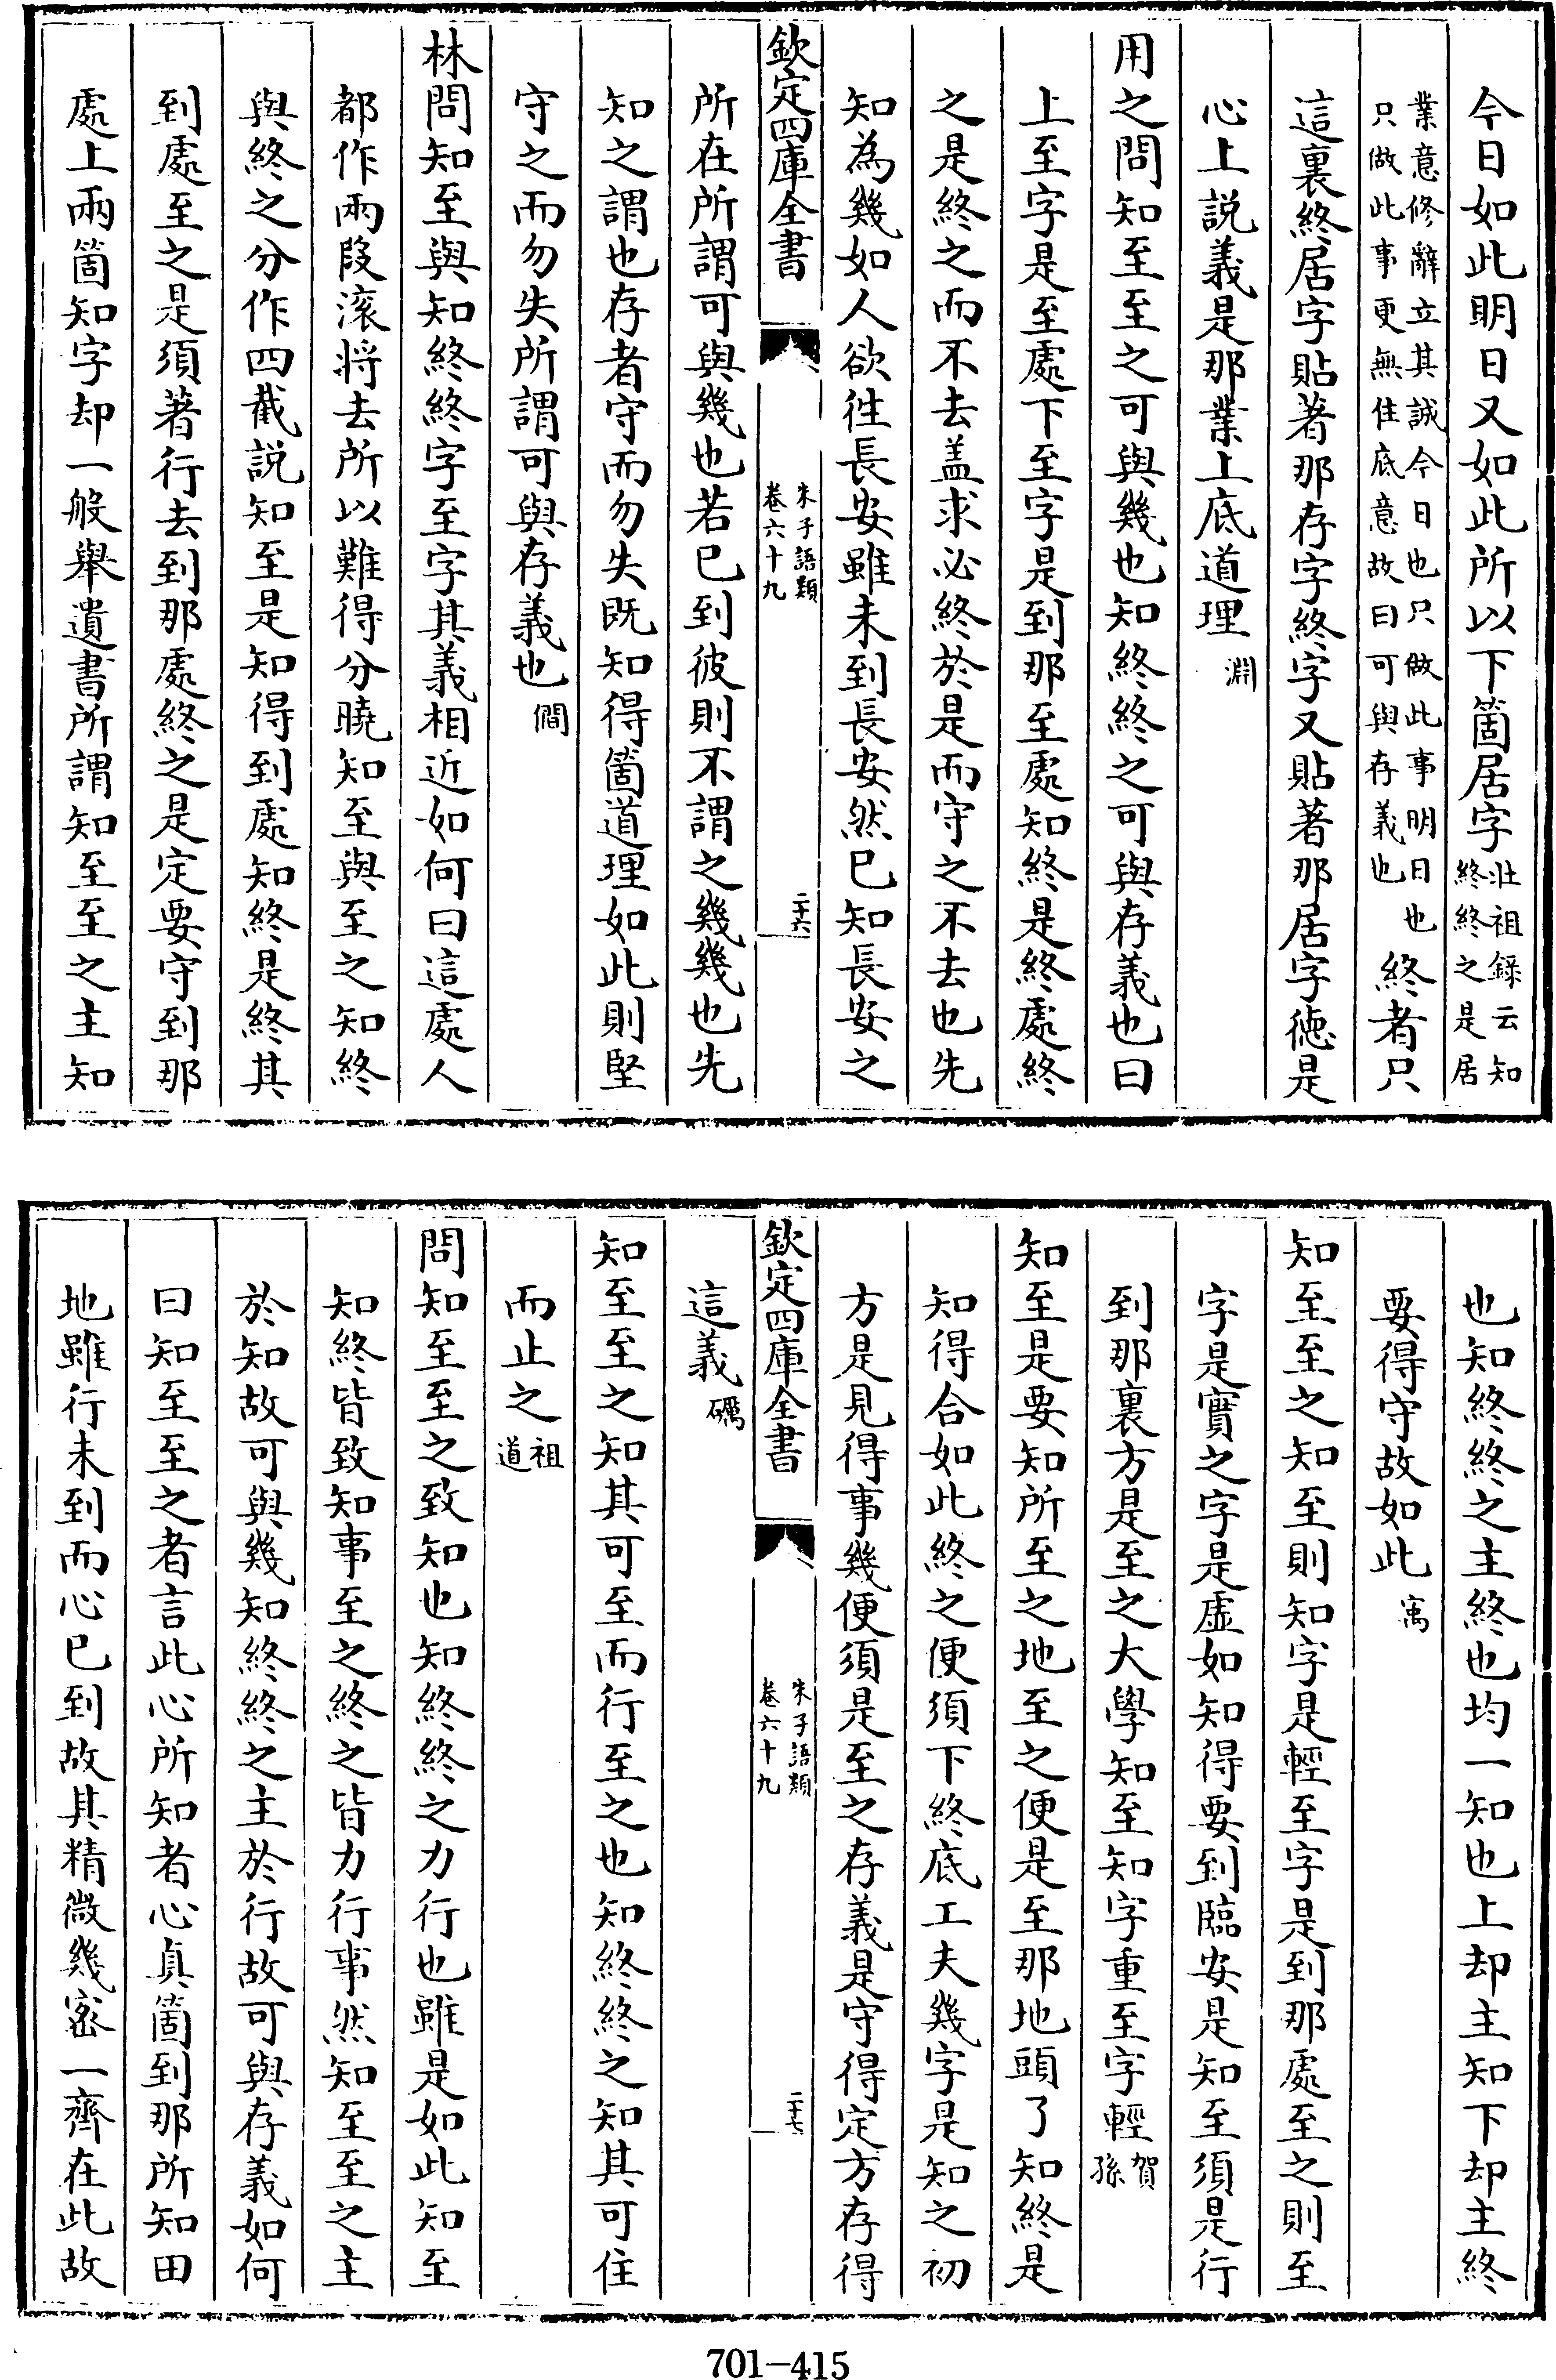 今日如此明日又如此所以下箇居字壯祖錄云知終終之是居
業意修辭立其誠今日也只做此事明日也只做此事更無住底意故曰可與存義也終者只
這裏終居字貼著那存字終字又貼著那居字德是
心上説義是那業上底道理淵
用之問知至至之可與幾也知終終之可與存義也曰
上至字是至處下至字是到那至處知終是終處終
之是終之而不去盖求必終於是而守之不去也先
知為幾如人欲往長安雖未到長安然已知長安之
欽定四庫全書
朱子語類
卷六十九
二十六
所在所謂可與幾也若已到彼則不謂之幾幾也先
知之謂也存者守而勿失既知得箇道理如此則堅
守之而勿失所謂可與存義也僴
林問知至與知終終字至字其義相近如何曰這處人
都作兩段滚將去所以難得分曉知至與至之知終
與終之分作四截説知至是知得到處知終是終其
到處至之是須著行去到那處終之是定要守到那
處上兩箇知字却一般舉遺書所謂知至至之主知
也知終終之主終也均一知也上却主知下却主終
要得守故如此㝢
知至至之知至則知字是輕至字是到那處至之則至
字是實之字是虛如知得要到臨安是知至須是行
到那裏方是至之大學知至知字重至字輕賀孫
知至是要知所至之地至之便是至那地頭了知終是
知得合如此終之便須下終底工夫幾字是知之初
方是見得事幾便須是至之存義是守得定方存得
欽定四庫全書
朱子語類
卷六十九
二十七
這義礪
知至至之知其可至而行至之也知終終之知其可住
而止之祖道
問知至至之致知也知終終之力行也雖是如此知至
知終皆致知事至之終之皆力行事然知至至之主
於知故可與幾知終終之主於行故可與存義如何
曰知至至之者言此心所知者心真箇到那所知田
地雖行未到而心已到故其精微幾宻一齊在此故
701-415